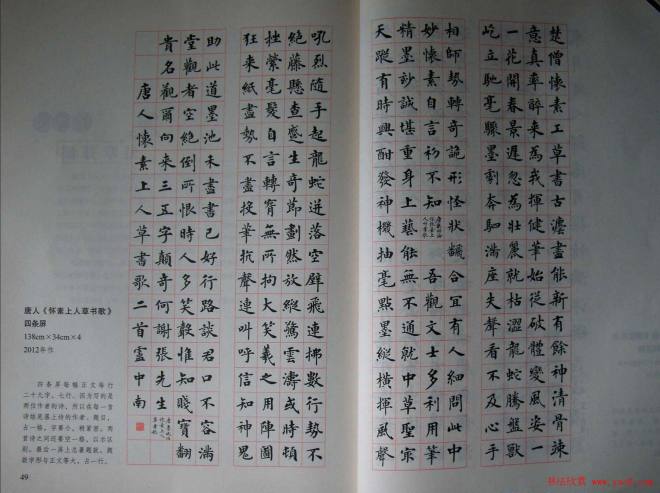 楚僧懷素工草書古瀍盡能新有餘神清骨竦
意真率醉來為我揮健筆始從破體變風姿一
一花開春景遲忽為壯麗就枯澀龍蛇騰盤獸
屹立馳毫驟墨劇奔駟滿座失聲看不及心手
相師勢轉奇詭形怪狀翻合宜有人細問此中
妙懷素自言初不知
吾觀文士多利用筆
精墨妙誠堪重身上藝能無不通就中草聖最
天蹤有時興酣發神機抽毫點墨縱橫揮風聲
吼烈隨手起龍蛇迸落空壁飛連拂數行勢不
絕藤懸查蹙生奇節劃然放縱驚雲濤或時頓
挫縈毫髮自言轉腕無所拘大笑羲之用陣圖
狂來紙盡勢不盡投筆抗聲連叫呼信知神鬼
助此道墨池未盡書已好行路談君口不容滿
堂觀者空絕倒所恨時人多笑聲惟知賤實翻
貴名觀爾向來三五字顛奇何謝張先生
唐人懷素上人草書歌二首 中南
唐人《怀素上人草书歌》
四条屏
138cm×34cm×4
2012年作
四条屏每幅正文每行
二十九字，七行。因为写的是
两位作者的诗，所以在每一首
诗结尾落上诗的作者、题目，
占一格，字要小，稍紧密。两
首诗之间还要空一格，以示区
别。最后一屏上应署题款，题
款字形与正文等大，占一行。
49